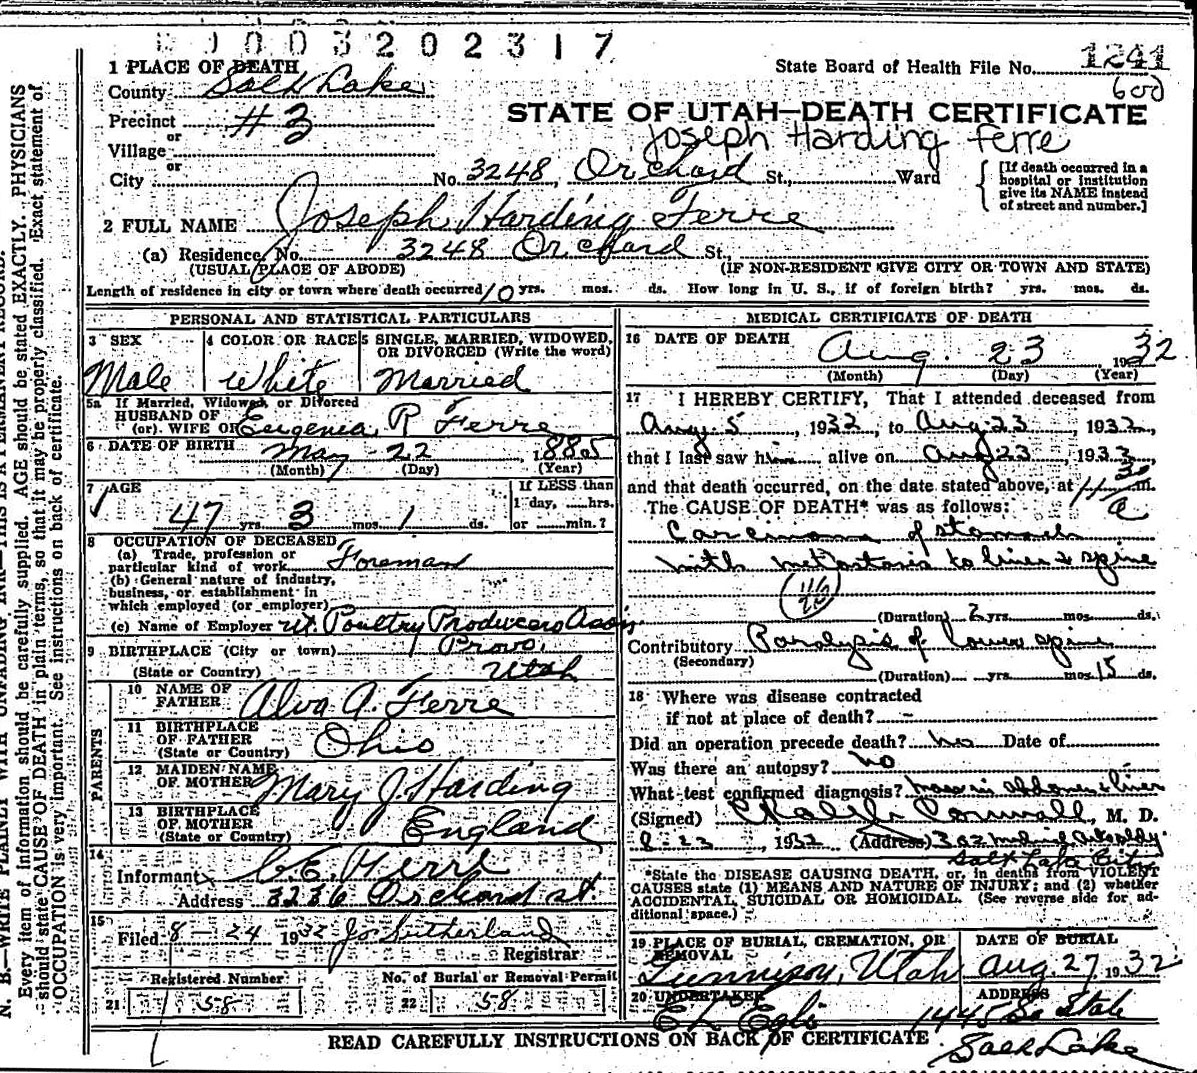 1003202317
1 PLACE OF DEATH
State Board of Health File No. 1241
County Salt Lake
600
Precinct #3
STATE OF UTAH—DEATH CERTIFICATE
or
Joseph Harding Ferre
Village
or
City No. 3248, Orchard St., Ward
[If death occurred in a hospital or institution give its NAME instead of street and number.]
2 FULL NAME Joseph Harding Ferre
(a) Residence, No. 3248 Orchard St.,
(USUAL PLACE OF ABODE) (IF NON-RESIDENT GIVE CITY OR TOWN AND STATE)
Length of residence in city or town where death occurred 10 yrs. mos. ds. How long in U. S., if of foreign birth? yrs. mos. ds.
PERSONAL AND STATISTICAL PARTICULARS
3 SEX 4 COLOR OR RACE 5 SINGLE, MARRIED, WIDOWED, OR DIVORCED (Write the word)
Male White Married
5a If Married, Widowed, or Divorced
HUSBAND OF
(or) WIFE OF Eugenia R Ferre
6 DATE OF BIRTH May 22, 1885
(Month) (Day) (Year)
7 AGE If LESS than
1 day, hrs.
47 yrs. 3 mos. 1 ds. or min.?
8 OCCUPATION OF DECEASED
(a) Trade, profession or
particular kind of work Foreman
(b) General nature of industry,
business, or establishment in
which employed (or employer)
(c) Name of Employer Ut. Poultry Producers Assn
9 BIRTHPLACE (City or town) Provo,
(State or Country) Utah
PARENTS
10 NAME OF
FATHER Alva A. Ferre
11 BIRTHPLACE
OF FATHER
(State or Country) Ohio
12 MAIDEN NAME
OF MOTHER Mary J. Harding
13 BIRTHPLACE
OF MOTHER
(State or Country) England
14
Informant
Address 3236 Orchard st.
15
Filed 8-24 1932 Jo. Sutherland
Registrar
Registered Number No. of Burial or Removal Permit
21 58 22 58
MEDICAL CERTIFICATE OF DEATH
16 DATE OF DEATH Aug. 23 1932
(Month) (Day) (Year)
17 I HEREBY CERTIFY, That I attended deceased from
Aug 5, 1932, to Aug 23, 1932,
that I last saw him alive on Aug 23, 1932
and that death occurred, on the date stated above, at a m.
The CAUSE OF DEATH* was as follows:
Carcinoma of stomach
with metastasis to liver & spine
(Duration) 2 yrs. mos. ds.
Contributory Paralysis of lower spine
(Secondary)
(Duration) yrs. mos. 15 ds.
18 Where was disease contracted
if not at place of death? -
Did an operation precede death? no Date of
Was there an autopsy? no
What test confirmed diagnosis? mass in abdomen & liver
(Signed) Cornwall, M. D.
8-23, 1932 (Address)
Salt Lake City
*State the DISEASE CAUSING DEATH, or, in deaths from VIOLENT
CAUSES state (1) MEANS AND NATURE OF INJURY; and (2) whether
ACCIDENTAL, SUICIDAL OR HOMICIDAL. (See reverse side for ad-
ditional space.)
19 PLACE OF BURIAL, CREMATION, OR REMOVAL DATE OF BURIAL
Gunnison, Utah Aug. 27, 1932
20 UNDERTAKER ADDRESS
E L Egli 1445 So State
Salt Lake
READ CAREFULLY INSTRUCTIONS ON BACK OF CERTIFICATE
N. B.—WRITE PLAINLY WITH UNFADING INK—THIS IS A PERMANENT RECORD.
Every item of information should be carefully supplied. AGE should be stated EXACTLY. PHYSICIANS
should state CAUSE OF DEATH in plain terms, so that it may be properly classified. Exact statement of
OCCUPATION is very important. See instructions on back of certificate.